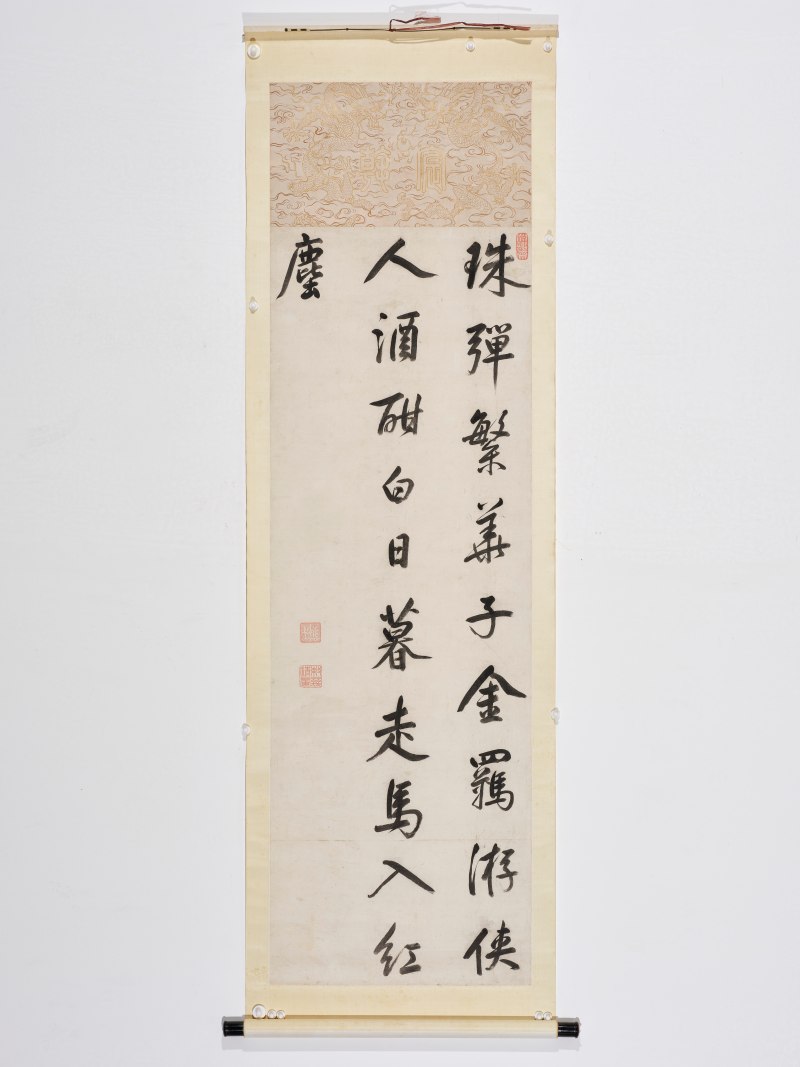 珠彈繁華子金羈游俠
人酒酣白日暮走馬入紅
塵
宸翰